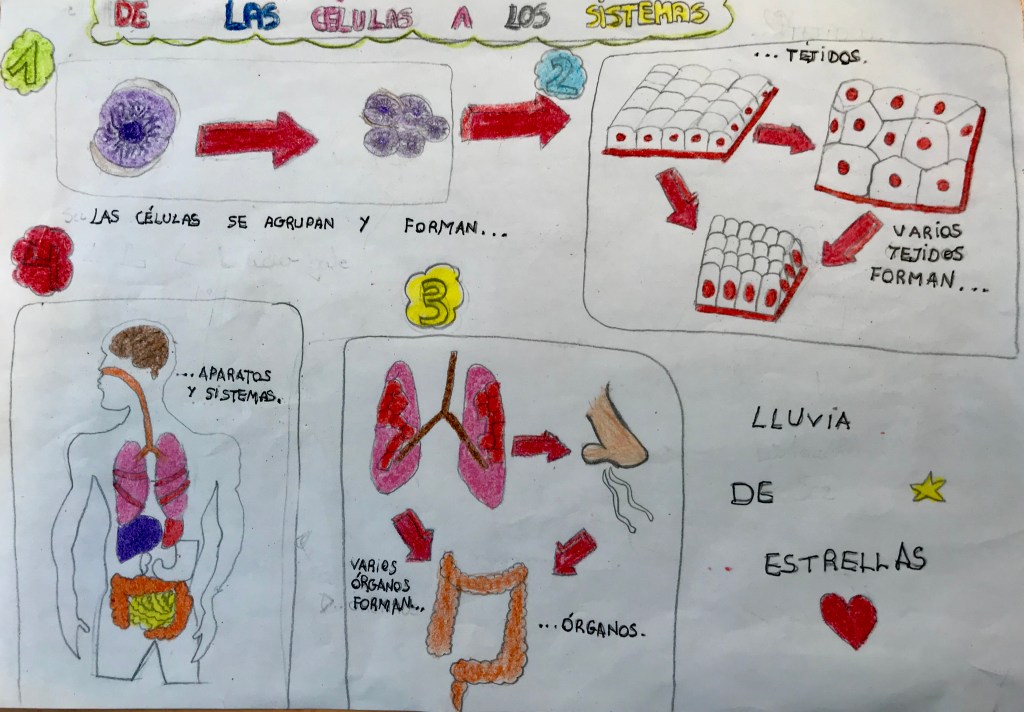 DE LAS CÉLULAS A LOS SISTEMAS
1
LAS CÉLULAS SE AGRUPAN Y FORMAN...
2
...TÉJIDOS.
VARIOS
TEJIDOS
FORMAN...
3
VARIOS
ÓRGANOS
FORMAN...
...ÓRGANOS.
4
...APARATOS
Y SISTEMAS.
LLUVIA
DE
ESTRELLAS